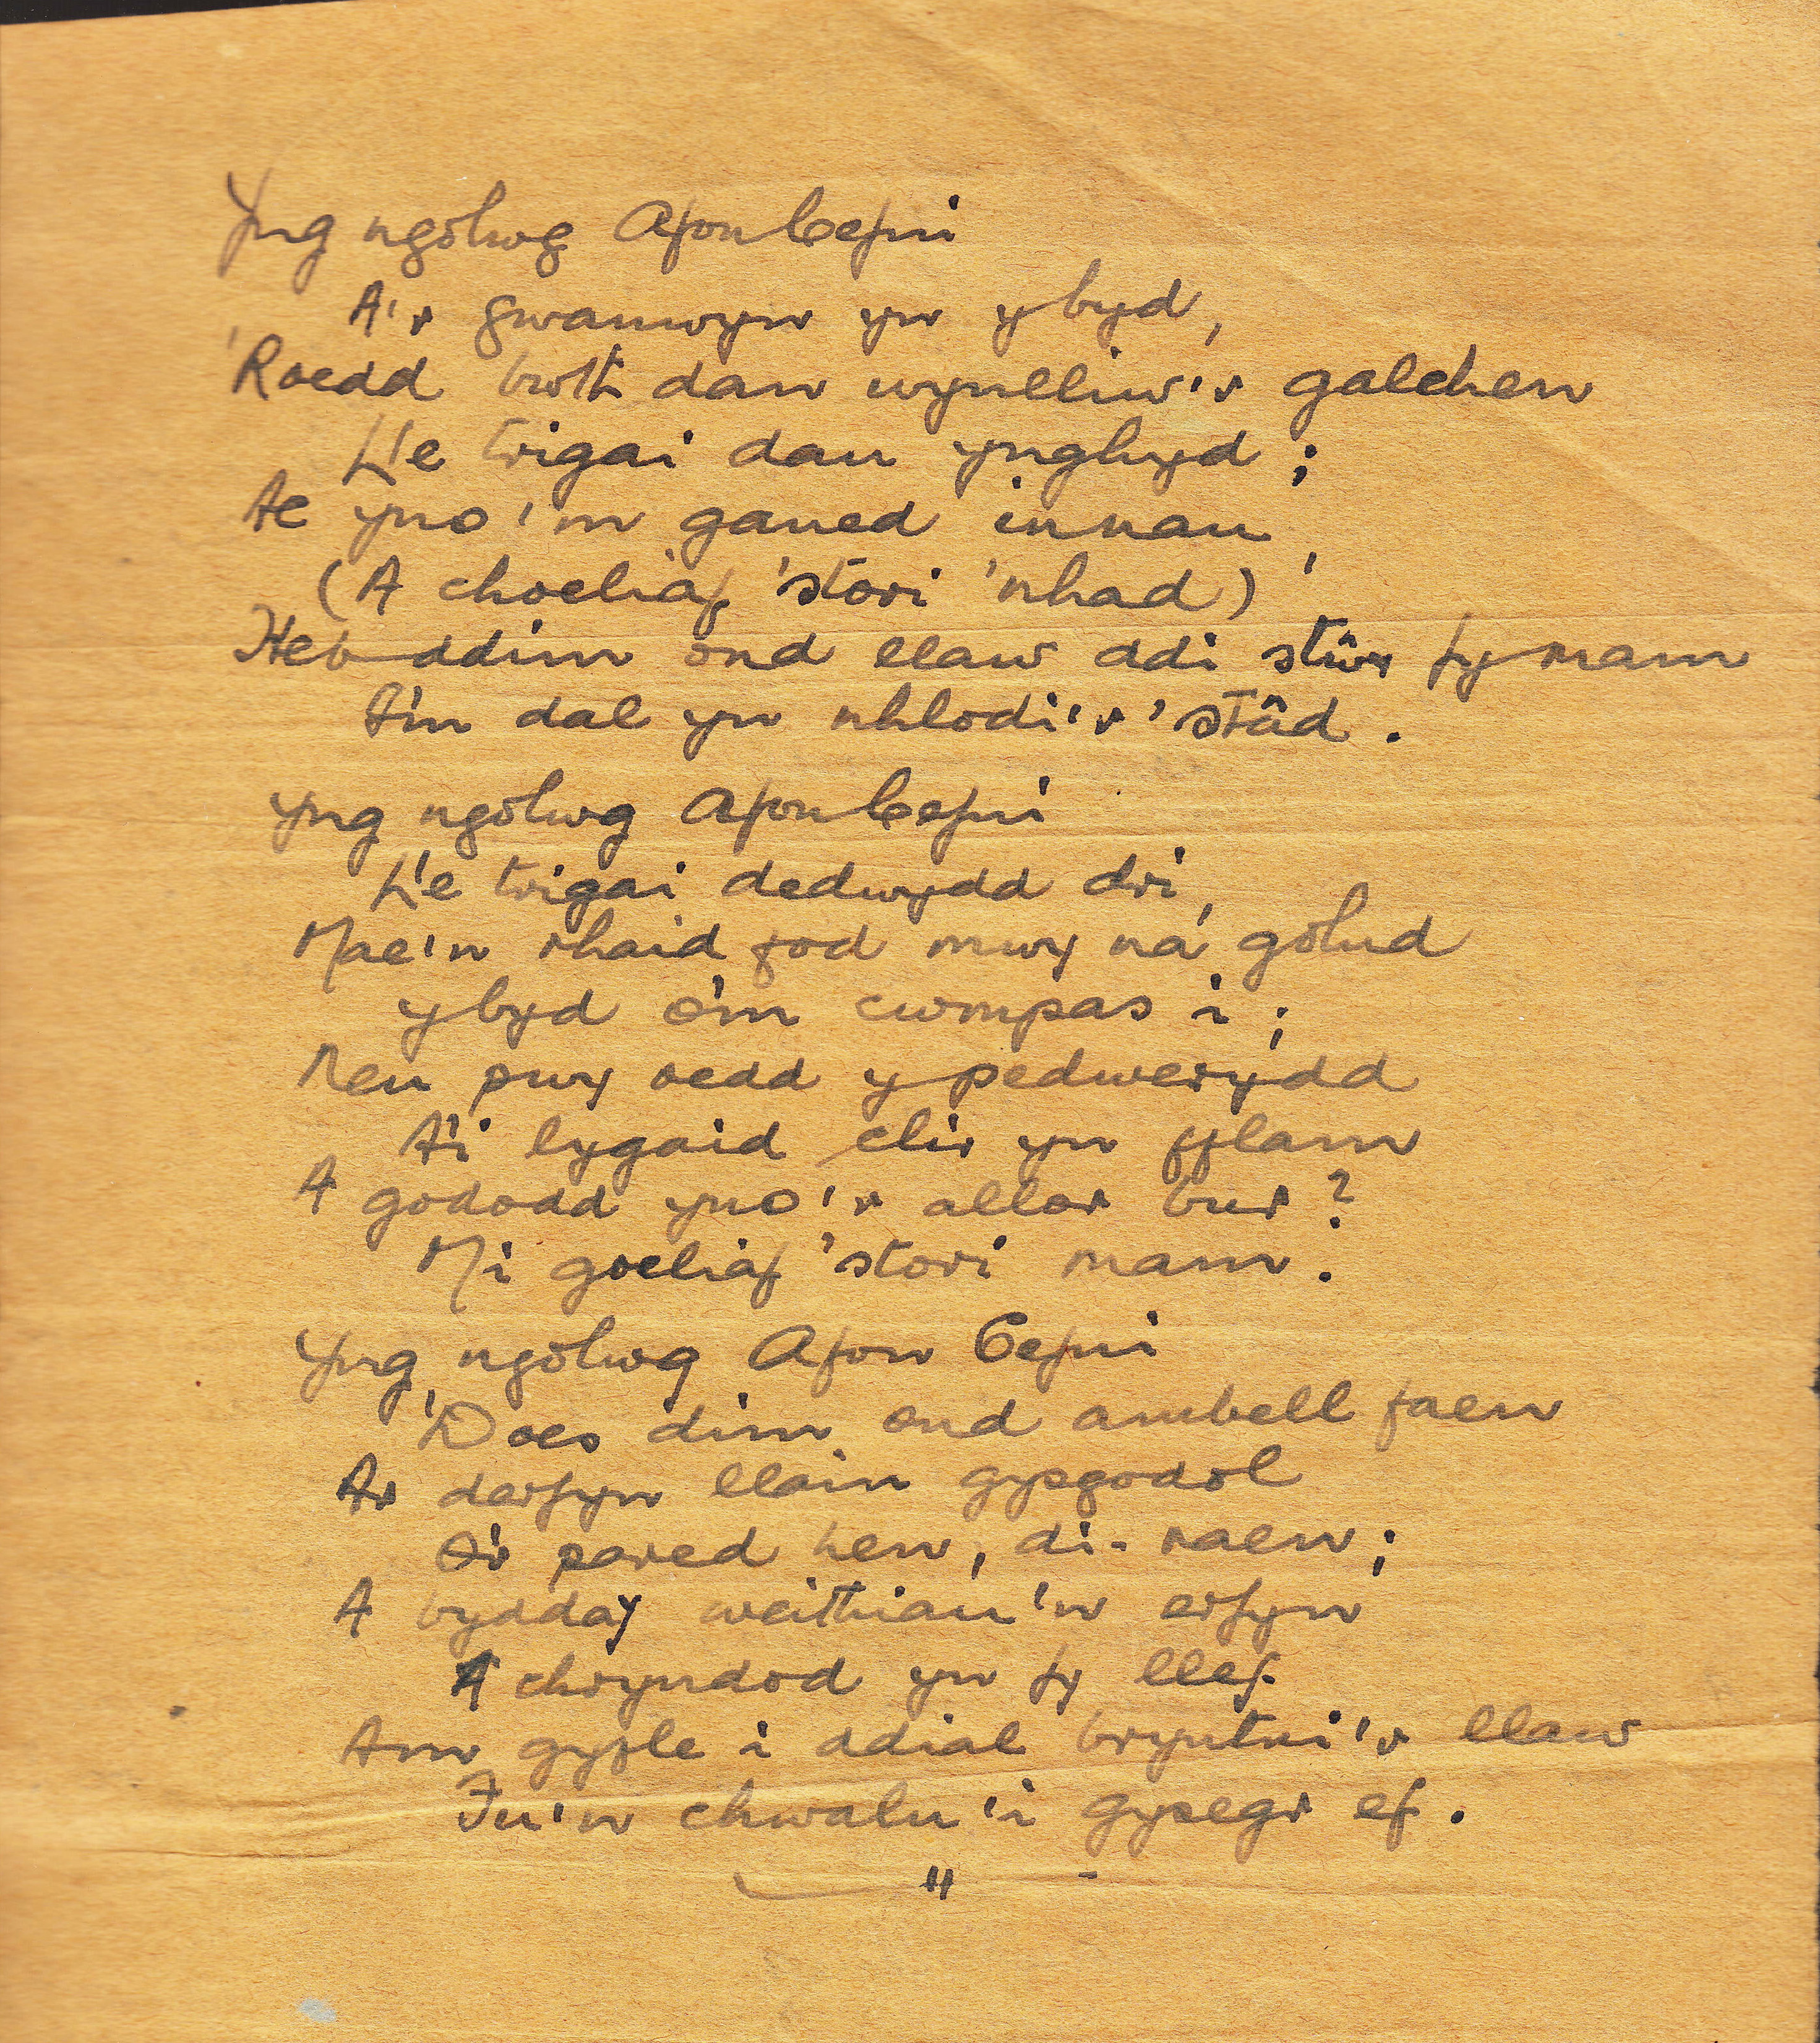 Yng ngolwg Afon Cefni
A'r gwanwyn yn y byd,
'Roedd bwth dan wynlliw'r galchen
Lle trigai dau ynghyd;
Ac yno'm ganed innau,
(A choeliaf 'stori 'nhad)
Heb ddim ond llaw ddi stŵr fy mam
A'm dal yn nhlodi'r 'stâd.
Yng ngolwg Afon Cefni
Lle trigai dedwydd dri,
Mae'n rhaid fod mwy na golud
y byd o'm cwmpas i;
Neu pwy oedd y pedwerydd
A'i lygaid clir yn fflam
A gododd yno'r allor bur?
Mi goeliaf 'stori mam.
Yng ngolwg Afon Cefni
'Does dim ond ambell faen
Ar derfyn llain gysgodol
O'r pared hen, di-raen;
A byddaf weithiau'n erfyn
A chryndod yn fy llef
Am gyfle i ddial bryntni'r llaw
Fu'n chwalu'i gysegr ef.